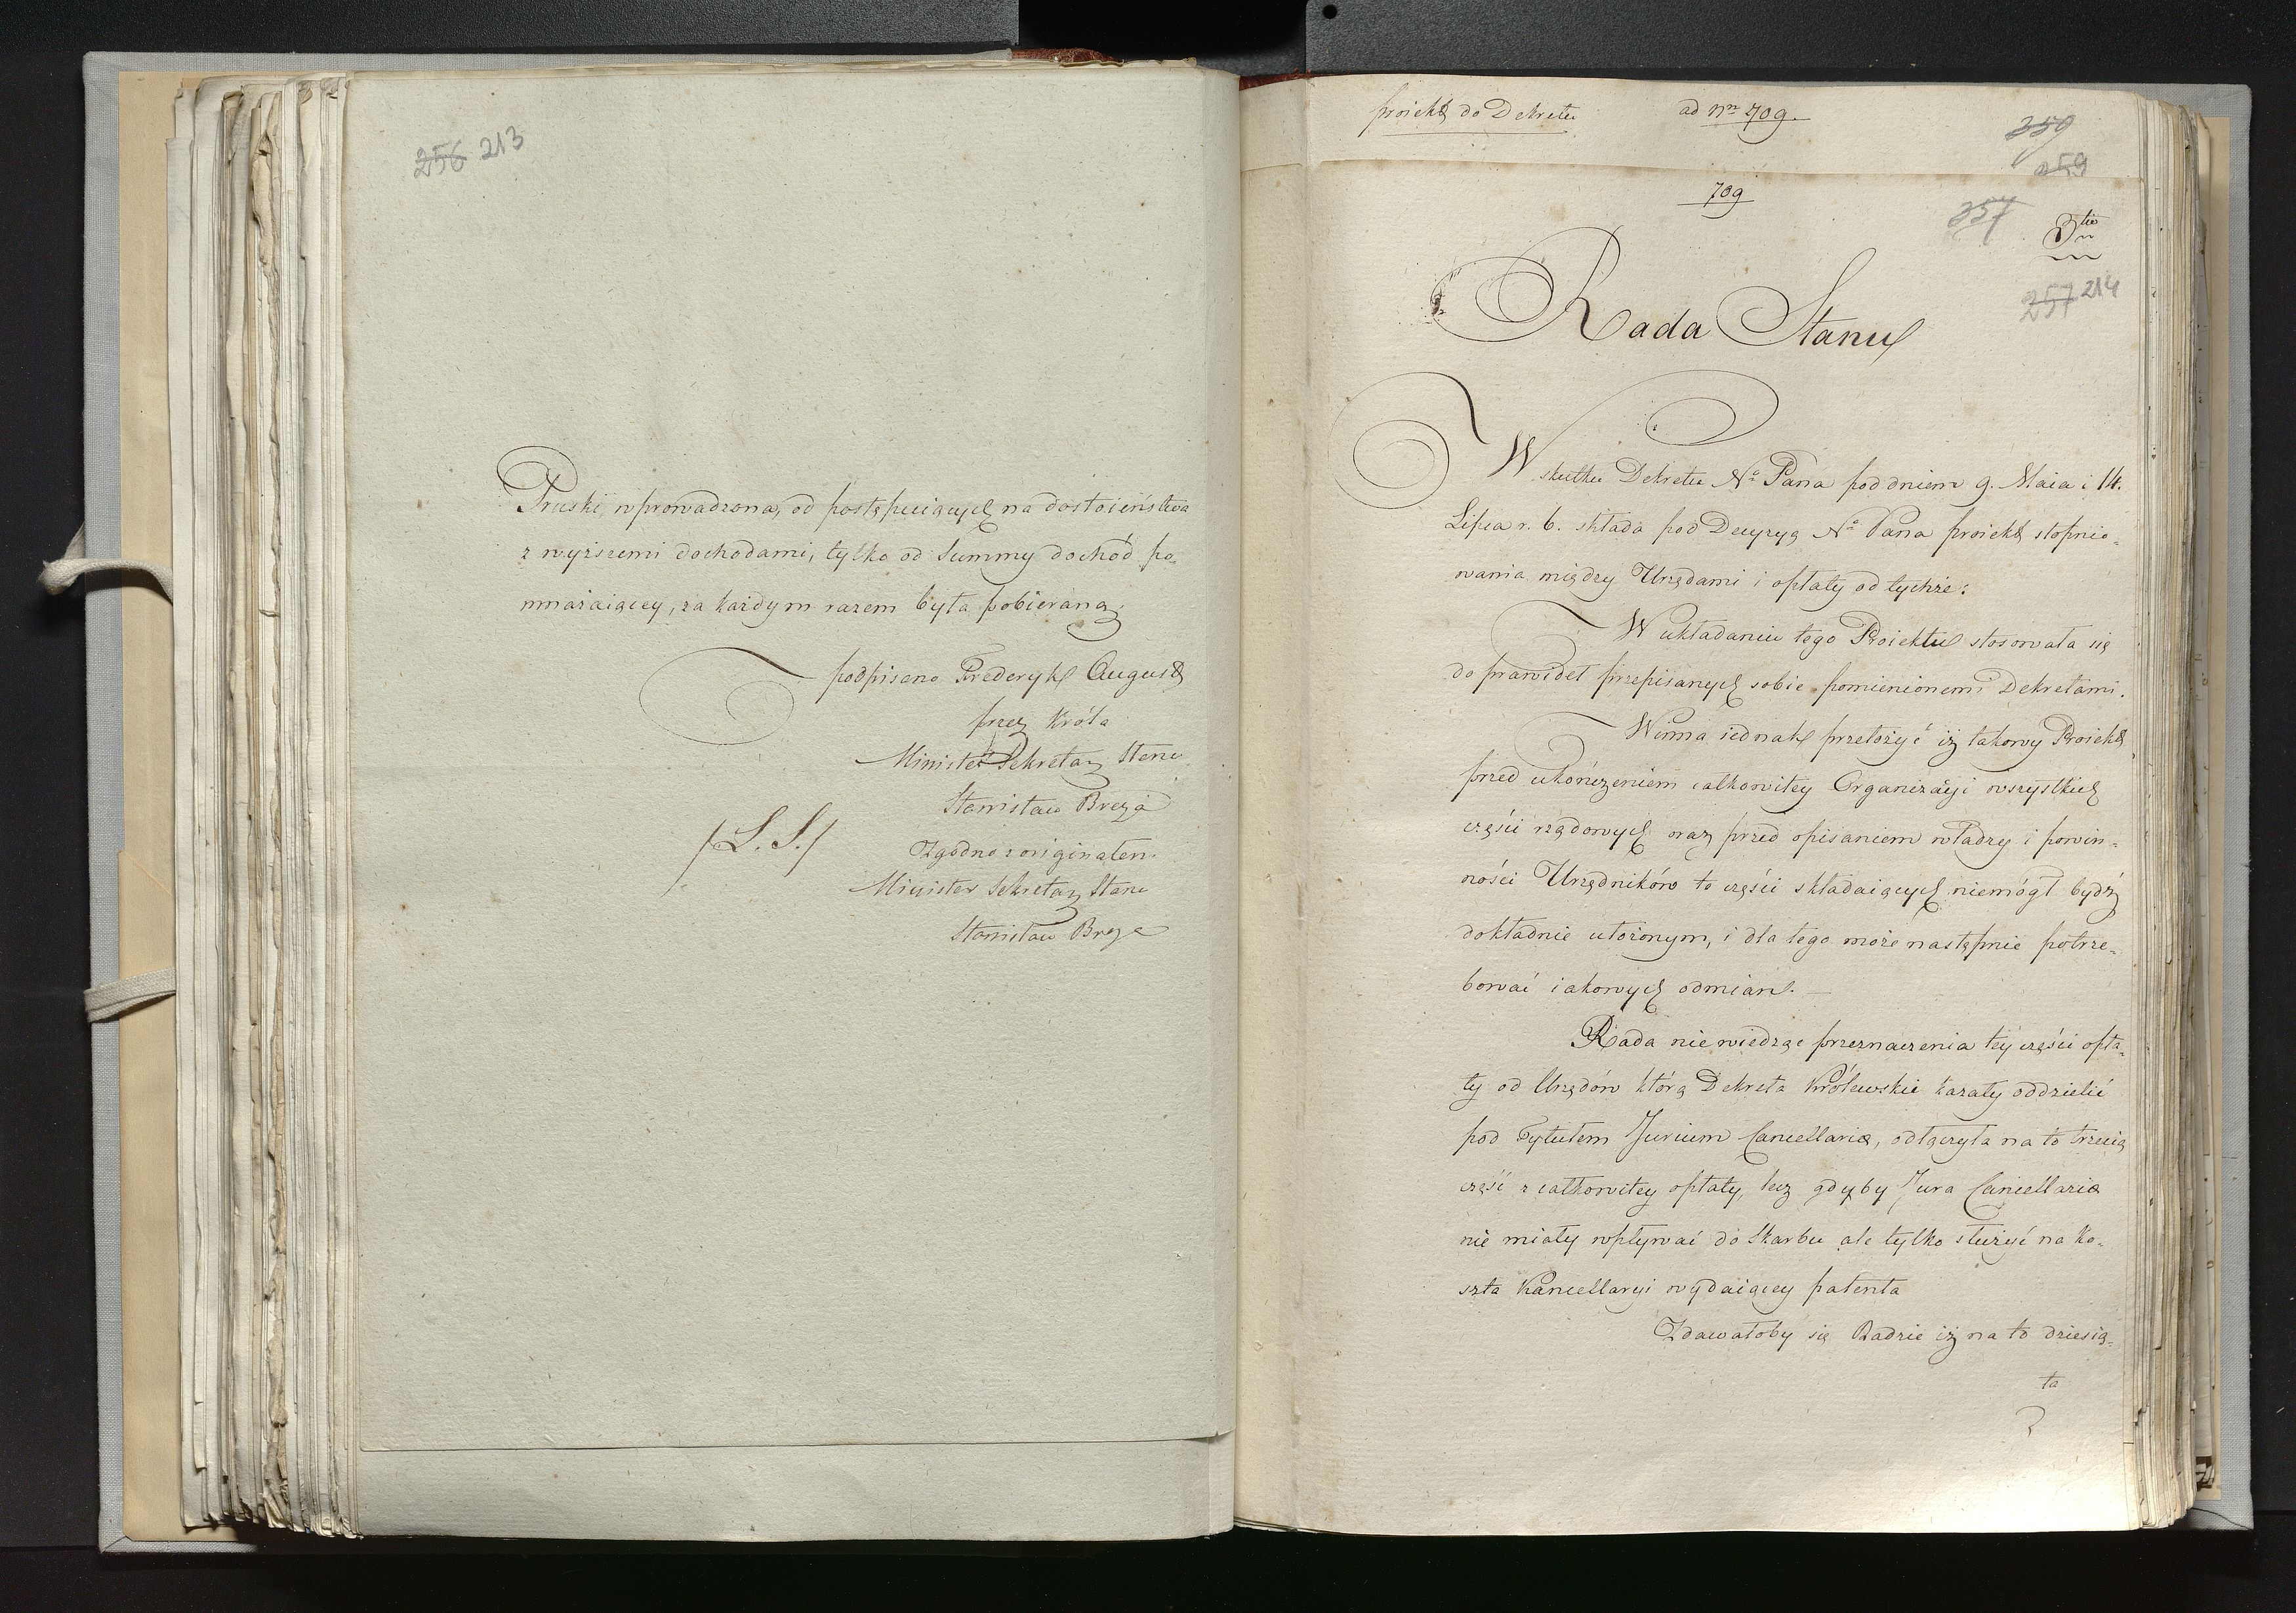 256 213
Pruski wprowadzona, od postępuiących na dostoieństwa
z wyższemi dochodami, tylko od Summy dochód po-
mnażaiącey, za każdym razem była pobieraną.
podpisano Frederyk August
przez Króla
Minister Sekretarz Stanu
Stanisław Breza
/L. S./
Zgodno z originałem
Minister Sekretarz Stanu
Stanisław Breza
proiekt do Dekretu ad Nrm 709.
359
259
709
357
3tio
257 214
Rada Stanu
W skutku Dekretu No Pana pod dniem 9. Maia i 14.
Lipca r. b. składa pod Decyzyą No Pana proiekt stopnio-
wania między Urzędami i opłaty od tychże:
W układaniu tego Proiektu stosowała się
do prawideł przepisanych sobie pomienionemi Dekretami.
Winna iednak przełożyć iż takowy Proiekt
przed ukończeniem całkowitey Organizacyi wszystkich
części rządowych oraz przed opisaniem władzy i powin-
ności Urzędników te części składaiących niemógł bydź
dokładnie ułożonym, i dla tego może następnie potrze-
bować iakowych odmian. —
Rada nie wiedząc przeznaczenia tey części opła-
ty od Urzędów którą Dekreta Królewskie kazały oddzielić
pod Tytułem Jurium Cancellariæ, odłączyła na to trzecią
część z całkowitey opłaty, lecz gdyby Jura Cancellariæ
nie miały wpływać do Skarbu ale tylko służyć na ko-
szta Kancellaryi wydaiącey patenta
Zdawałoby się Radzie iż na to dziesią-
ta